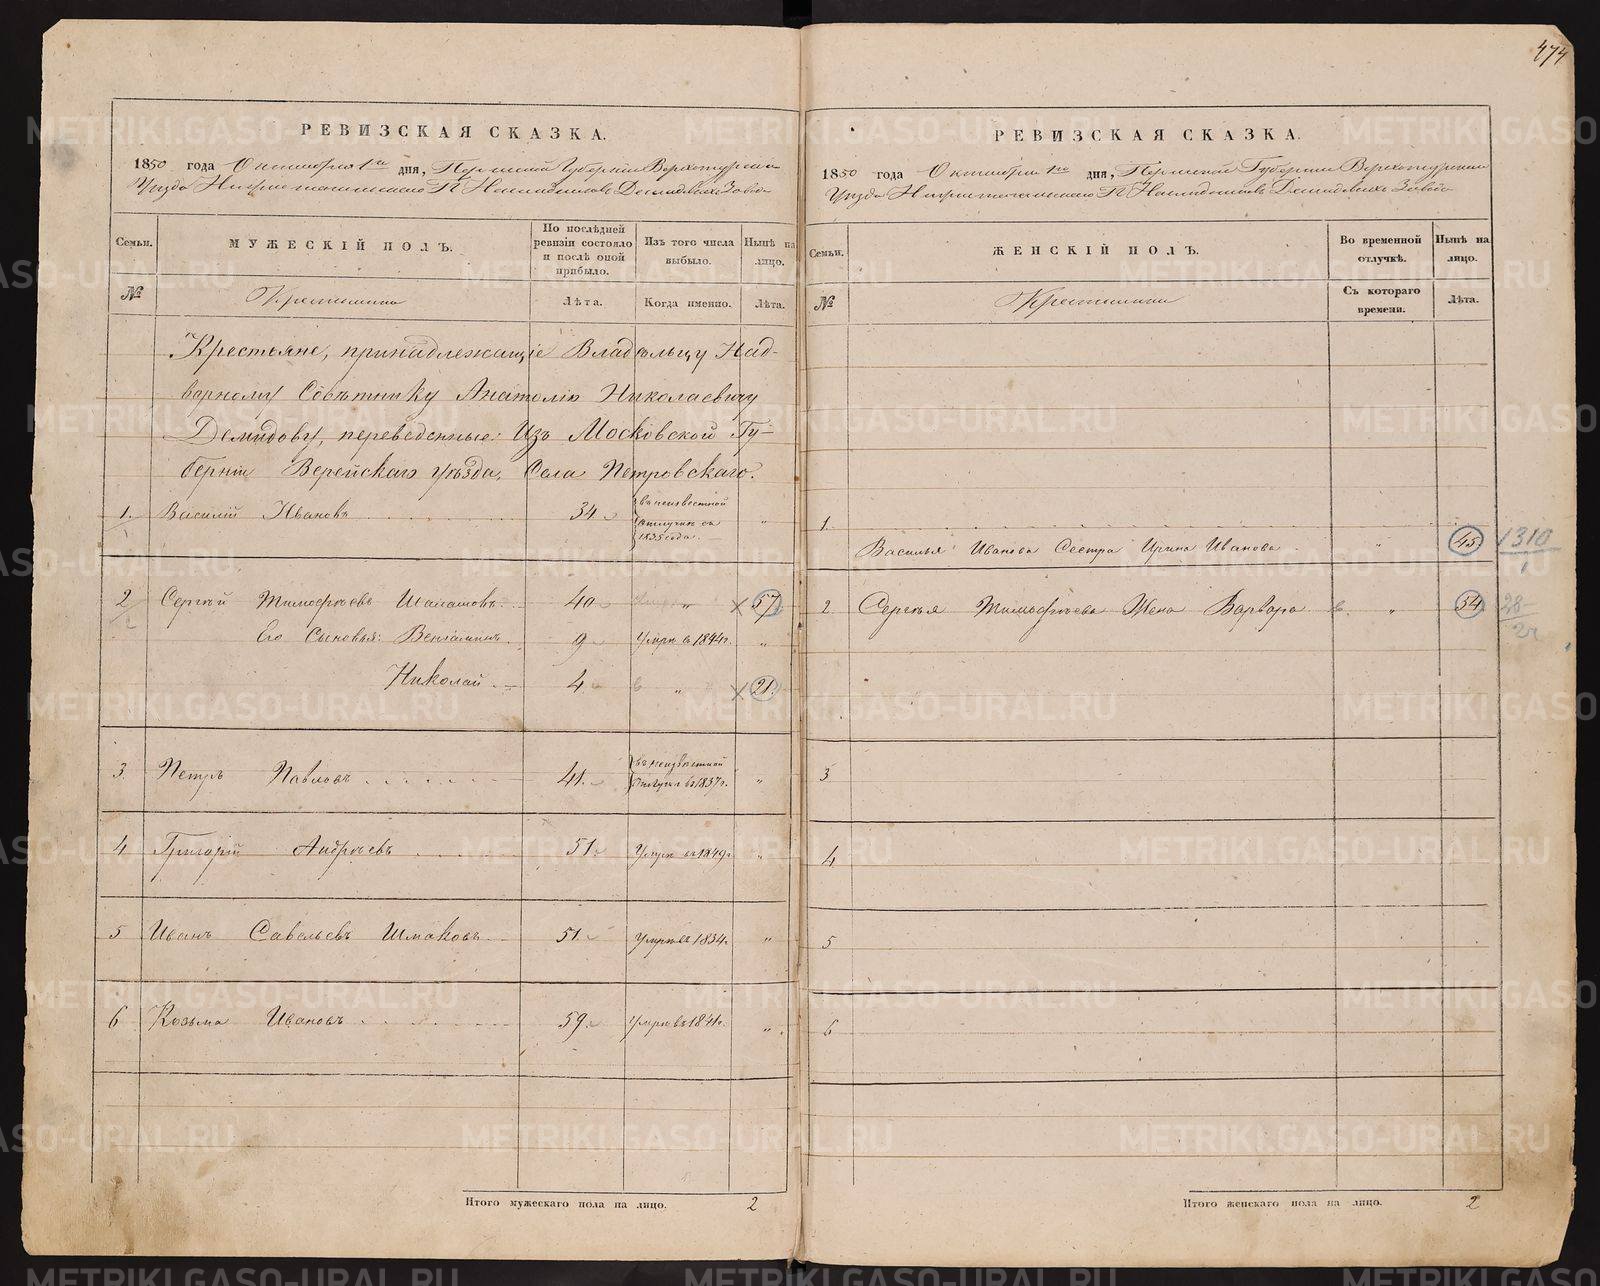 474
РЕВИЗСКАЯ СКАЗКА.
1850 года Октября 1го дня, Пермской Губерніи Верхотурскаго
Уѣзда Нижнетагильскаго Г. Наслѣдниковъ Демидовыхъ Завода
Семьи. МУЖЕСКІЙ ПОЛЪ. По послѣдней ревизіи состояло и послѣ оной прибыло. Изъ того числа выбыло. Нынѣ на лицо.
№ Крестьяне Лѣта. Когда именно. Лѣта.
Крестьяне, принадлежащіе Владѣльцу Над-
ворному Совѣтнику Анатолію Николаевичу
Демидову, переведенные: Изъ Московской Гу-
берніи Верейскаго уѣзда, Села Петровскаго.
1. Василій Ивановъ 34 въ неизвестной отлучкѣ съ 1835 года. "
2 Сергѣй Тимофѣевъ 40 " 57
Его Сыновья: Веніаминъ 9 Умре в 1844г. "
Николай 4 " 21
3 Петръ Павловъ 41. въ неизвѣстной отлучкѣ въ 1837г. "
4 Григорій Андрѣевъ 51. Умре въ 1849г. "
5 Иванъ Савельевъ Шмаковъ 51 Умре въ 1834. "
6 Козьма Ивановъ 59. Умре въ 1841г. "
Итого мужескаго пола на лицо. 2
РЕВИЗСКАЯ СКАЗКА.
1850 года Октября 1го дня, Пермской Губерніи Верхотурскаго
Уѣзда Нижнетагильскаго Г. Наслѣдниковъ Демидовыхъ Завода
Семьи. ЖЕНСКІЙ ПОЛЪ. Во временной отлучкѣ. Нынѣ на лицо.
№ Крестьяне Съ котораго времени. Лѣта.
1.
Василья Иванова Сестра Ирина Иванова " 45 1310
1
2 Сергѣя Тимофѣева Жена Варвара " 54 28
2
3
4
5
6
Итого женскаго пола на лицо. 2
METRIKI.GASO-URAL.RU